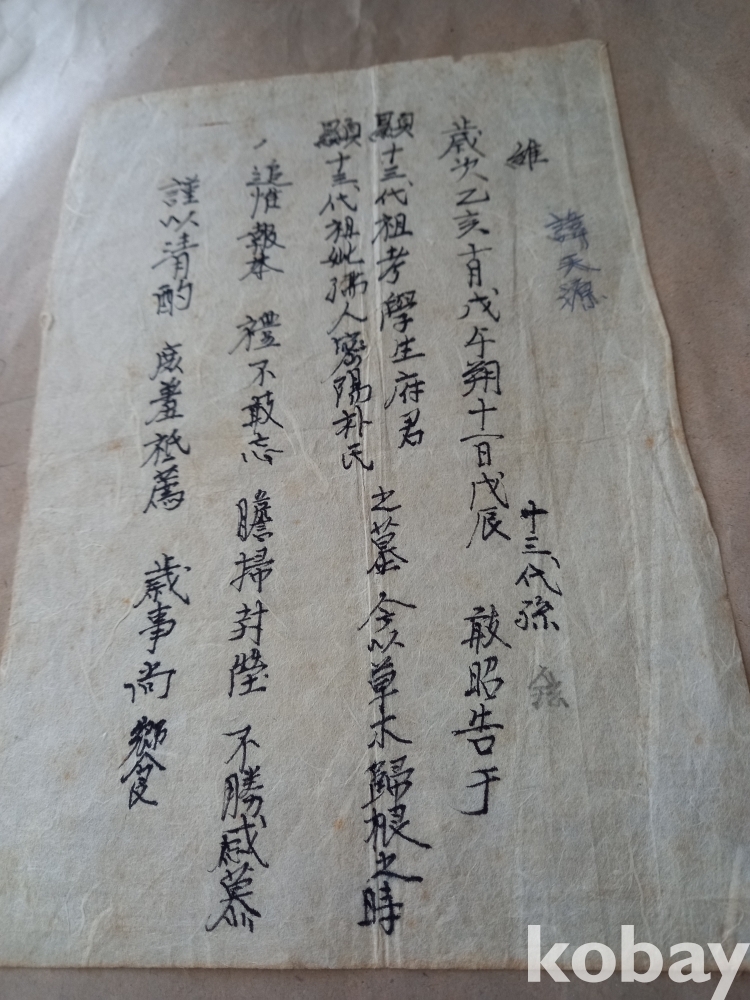 諱天源
維
歲次乙亥十月戊午朔十一日戊辰 十三代孫 敢昭告于
顯十三代祖考學生府君
顯十三代祖妣孺人密陽朴氏
之墓 今以草木歸根之時
追惟報本 禮不敢忘 瞻掃封塋 不勝感慕
謹以清酌 庶羞祗薦 歲事尚饗
kobay